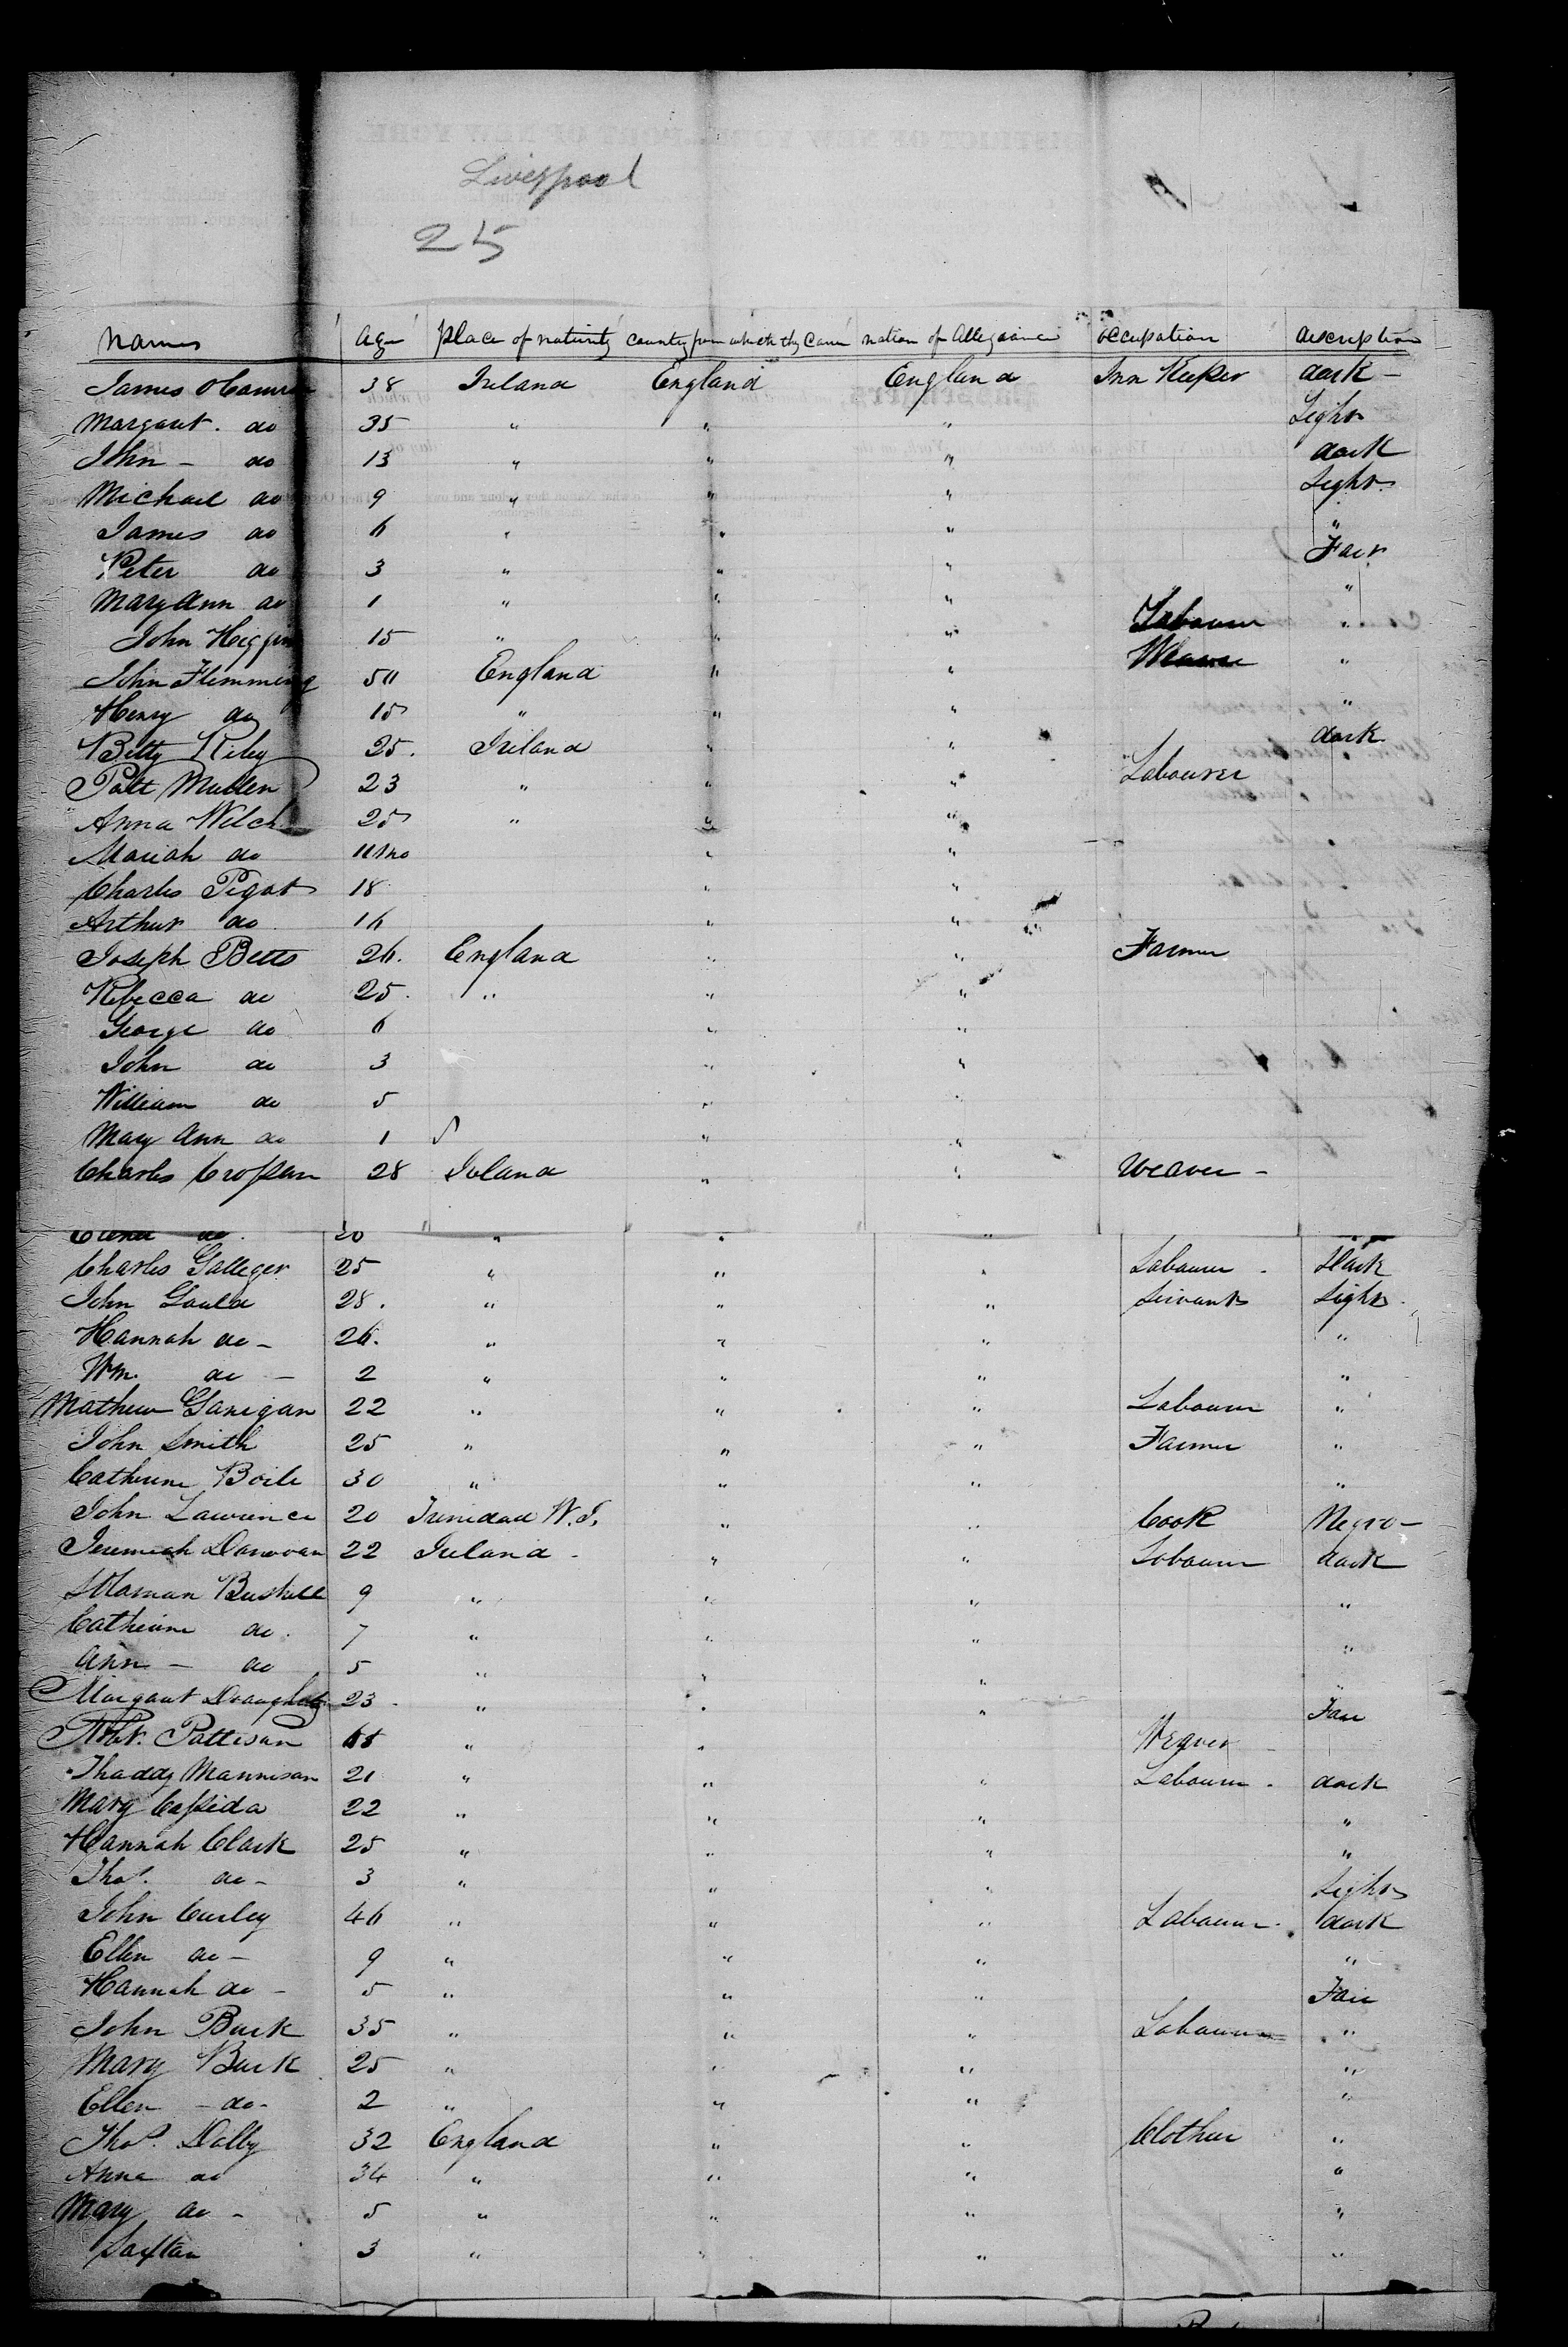 Liverpool
25
Names age place of nativity country from which they came nation of Allegiance occupation description
James 38 Ireland England England Inn Keeper dark -
Margaret. do 35 " " " Light
John - do 13 " " " dark
Michael do 9 " " " Light
James do 6 " " " "
Peter do 3 " " " Fair
Mary Ann do 1 " " " "
John Higgins 15 " " " Labourer "
John Flemming 50 England " " Weaver "
Henry do 15 " " " "
Betty Riley 25. Ireland " " dark
Patt Mullen 23 " " " Labourer
Anna Welch 25 " " "
Mariah do 11 mo " "
Charles Pigot 18 " "
Arthur do 16 " "
Joseph Betts 26. England " " Farmer
Rebecca do 25. " " "
George do 6 " "
John do 3 " "
William do 5 " "
Mary Ann do 1 " "
Charles Crossen 28 Ireland " " Weaver -
do. 20 " " "
Charles Galleger 25 " " " Labourer - Dark
John Gould 28. " " " Servant Light.
Hannah do - 26. " " " "
Wm. do - 2 " " " "
Mathew Ganigan 22 " " " Labourer "
John Smith 25 " " " Farmer "
Catherine Boile 30 " " " "
John Lawrence 20 Trinidad W.I. " " Cook Negro -
Jeremiah Donovan 22 Ireland - " " Labourer dark
Buskill 9 " " " "
Catherine do. 7 " " " "
Ann - do 5 " " " "
Margaret 23 - " " " Fair
Robt. Pattison " " Weaver -
Thaddy Mannison 21 " " " Labourer - dark
Mary Cassida 22 " " " "
Hannah Clark 25 " " " "
Thos. do - 3 " " " Light
John Curley 46 " " " Labourer - dark
Ellen do - 9 " " " "
Hannah do - 5 " " " Fair
John Burk 35 " " " Labourer "
Mary Burk 25 " " " "
Ellen - do - 2 " " " "
Thos. Dolby 32 England " " Clothier "
Anna do 34 " " " "
Mary do - 5 " " " "
Saxton 3 " " " "